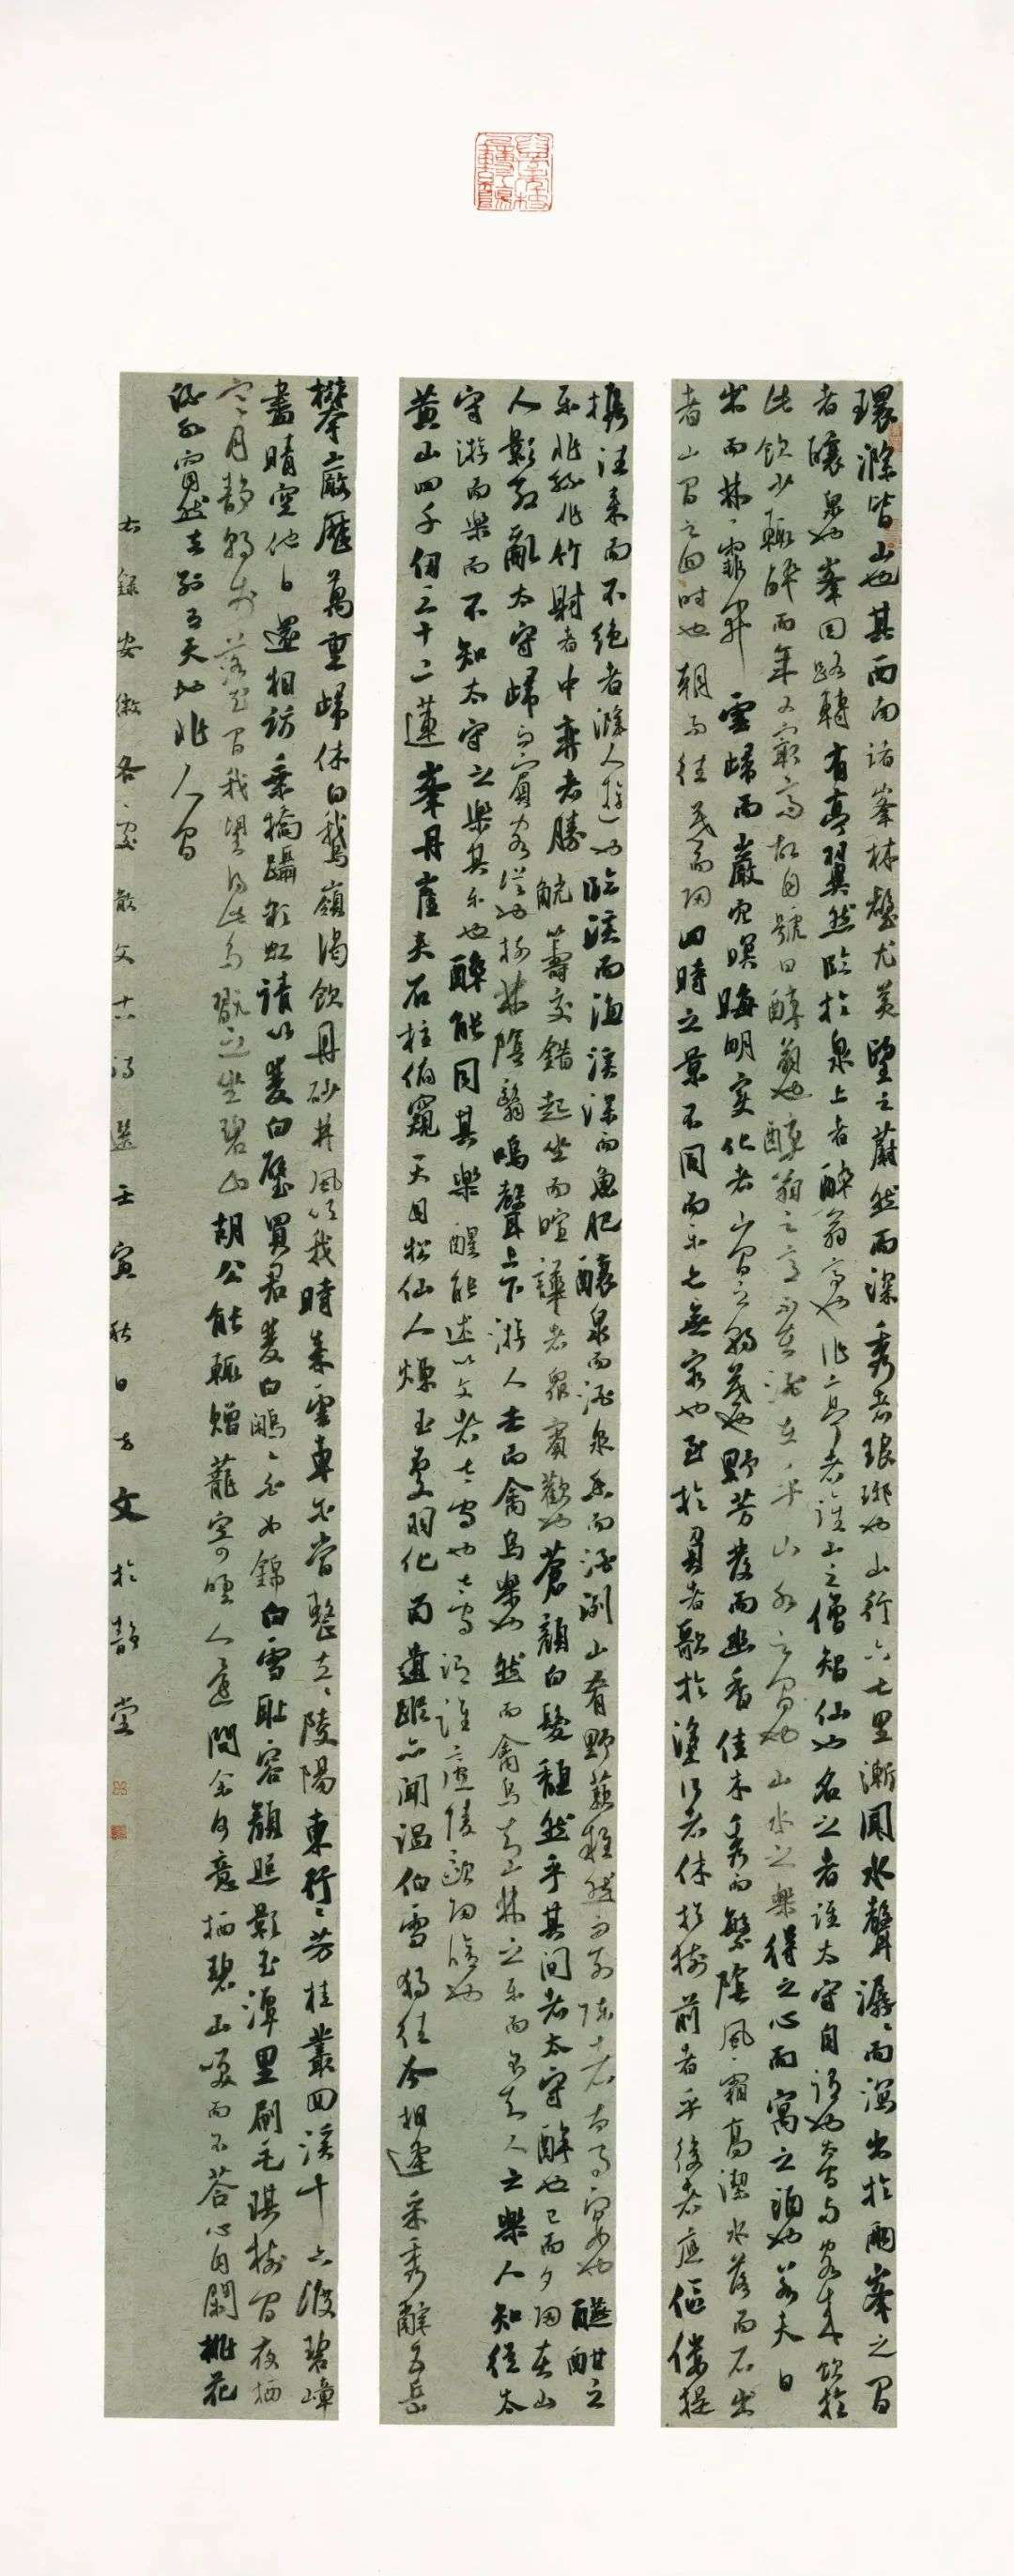 環滁皆山也其西南諸峯林壑尤美望之蔚然而深秀者琅琊也山行六七里漸聞水聲潺潺而瀉出於兩峯之間
者釀泉也峯回路轉有亭翼然臨於泉上者醉翁亭也作亭者誰山之僧智仙也名之者誰太守自謂也太守與客來飲於
此飲少輒醉而年又最高故自號曰醉翁也醉翁之意不在酒在乎山水之間也山水之樂得之心而寓之酒也若夫日
出而林霏開雲歸而巖穴暝晦明變化者山間之朝暮也野芳發而幽香佳木秀而繁陰風霜高潔水落而石出
者山間之四時也朝而往暮而歸四時之景不同而樂亦無窮也至於負者歌於塗行者休於樹前者呼後者應傴僂提
攜往來而不絕者滁人遊也臨溪而漁溪深而魚肥釀泉而酒泉香而酒洌山肴野蔌雜然而前陳者太守宴也醼酣之
樂非絲非竹射者中弈者勝觥籌交錯起坐而喧譁者眾賓歡也蒼顏白髮頹然乎其間者太守醉也已而夕陽在山
人影散亂太守歸而賓客從也樹林陰翳鳴聲上下游人去而禽鳥樂也然而禽鳥知山林之樂而不知人之樂人知從太
守游而樂而不知太守之樂其樂也醉能同其樂醒能述以文者太守也太守謂誰廬陵歐陽脩也
黃山四千仞三十二蓮峯丹崖夾石柱伯窺天目松仙人煉玉處羽化留遺蹤亦聞溫伯雪獨往今相逢采秀辭五岳
攀巖歷萬重歸休白鵝嶺渴飲丹砂井風吹我時來雲車爾當整去去陵陽東行行芳桂叢回溪十六渡碧嶂
盡晴空他日還相訪乘橋躡彩虹請以雙白璧買君雙白鷴鷴白如錦白雪恥容顏照影玉潭里刷毛琪樹間夜棲
寒月靜朝步落花間我願得此鳥翫之坐碧山胡公能輒贈籠寄野人還問余何意栖碧山笑而不荅心自閑桃花
流水窅然去別有天地非人間
右錄安徽名家散文古詩選壬寅秋日方文於靜堂